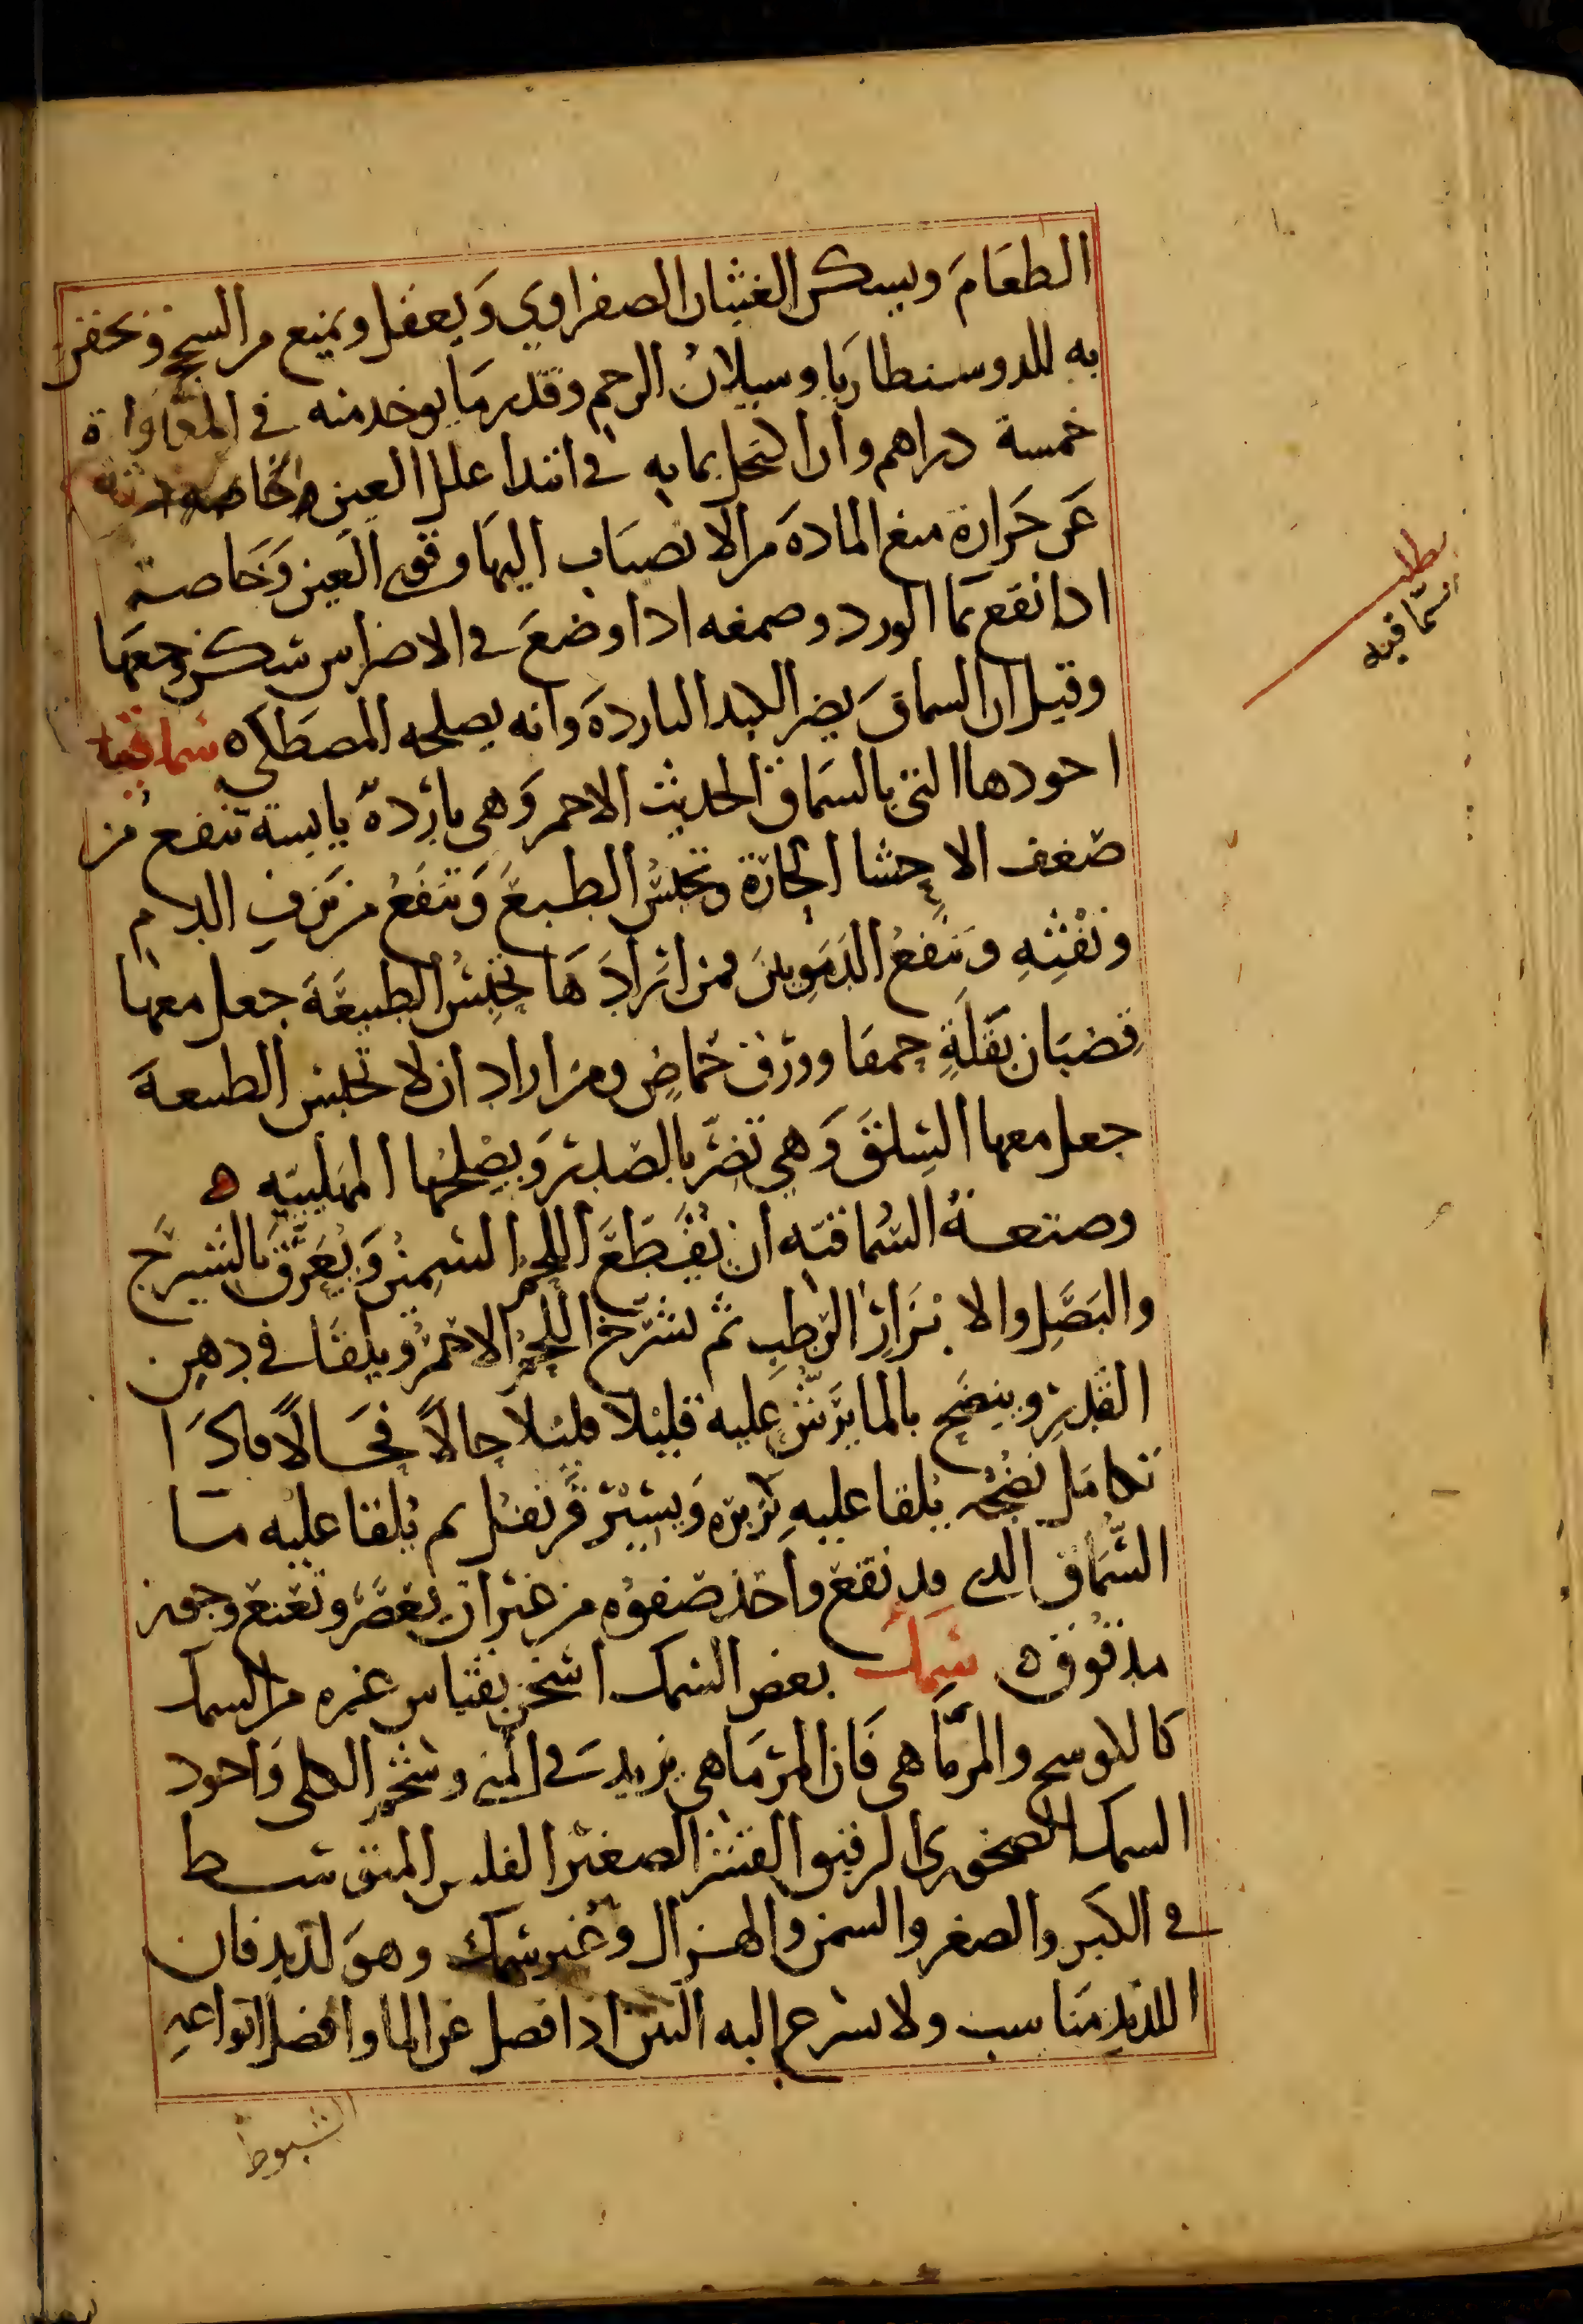 الطعَامَ ويسكن الغثيان الصفراوي وَيعقل ويمنع من السحج ويحقن
به للدوسنطاريا وسيلان الرحم وقدر مَا يوخد منه في المدَاوَاة
خمسة دراهم وان اكتحل بمايه في ابتدا علل العين والخاصه
عَن حَرارة منع المادهَ من الانصبَاب اليهَا وقوى العين وَخَاصة
ادا نقع بمَا الورد وصمغه ادا وضعَ في الاضراس سكن وجعهَا
وقيل ان السماقَ يضر الكبد الباردهَ وانه يصلحه المصطَكي ه سماقيه
اجودها التى بالسمَاق الحديث الاحمر وَهى باردهّ يابسة تنفع من
ضعف الاحشا الحَارّة وتحبسُ الطبعَ وَتنفَعُ من نزفِ الدم
ونفثِهِ وَتنفعُ الدَمَوِيينَ فمن ارَادَهَا تحبِسُ الطبيعَةَ جعل معهَا
قضبَان بَقلَةٍ حمقا وورق حُماضٍ ومن اراد ان لا تحبس الطبيعة
جعل معها السِلقَ وَهي تضرّ بالصدر وَيصْلحهَا المهلبيه ه
وصنعة السُماقيّه ان يُقَطَعَّ اللحم السَمِين وَيُعَرَّق بالشيرَج
والبَصَلِ والابزَارِ الرطبِ ثم يشرّح اللحم الاحمَرُ ويلقَا في دهِن
القِدرِ وينضَج بالما يرَش عليه قليلا قليلا حالاً فحَالاً فادَا
تكامَل نضجُه يُلقا عليه كزبره وَيسير قرَنفل ثم يُلقا عليه مَا
السُّمَاق الدى قد نقع واخذ صَفوُه من غير ان يُعصَر ونعنع وجوز
مدقوق ه سمك بعض السمك اسخن بقيَاس غيره من السمك
كالكوسج والمرّمَا هى فَان المرمَاهى يزيد في المَنى وسخن الكلى وَاجود
السمك الصخورى الرقيق القشر الصغير الفلس المتوَسط
في الكبر والصغر والسمن والهزال وغير سمك وهوَ لديد فان
اللديد مَناسب ولا يسرع اليه النتن اذا فصل عن الما وافضل انواعهِ
الشبوط
مطلب
سمّاقيه